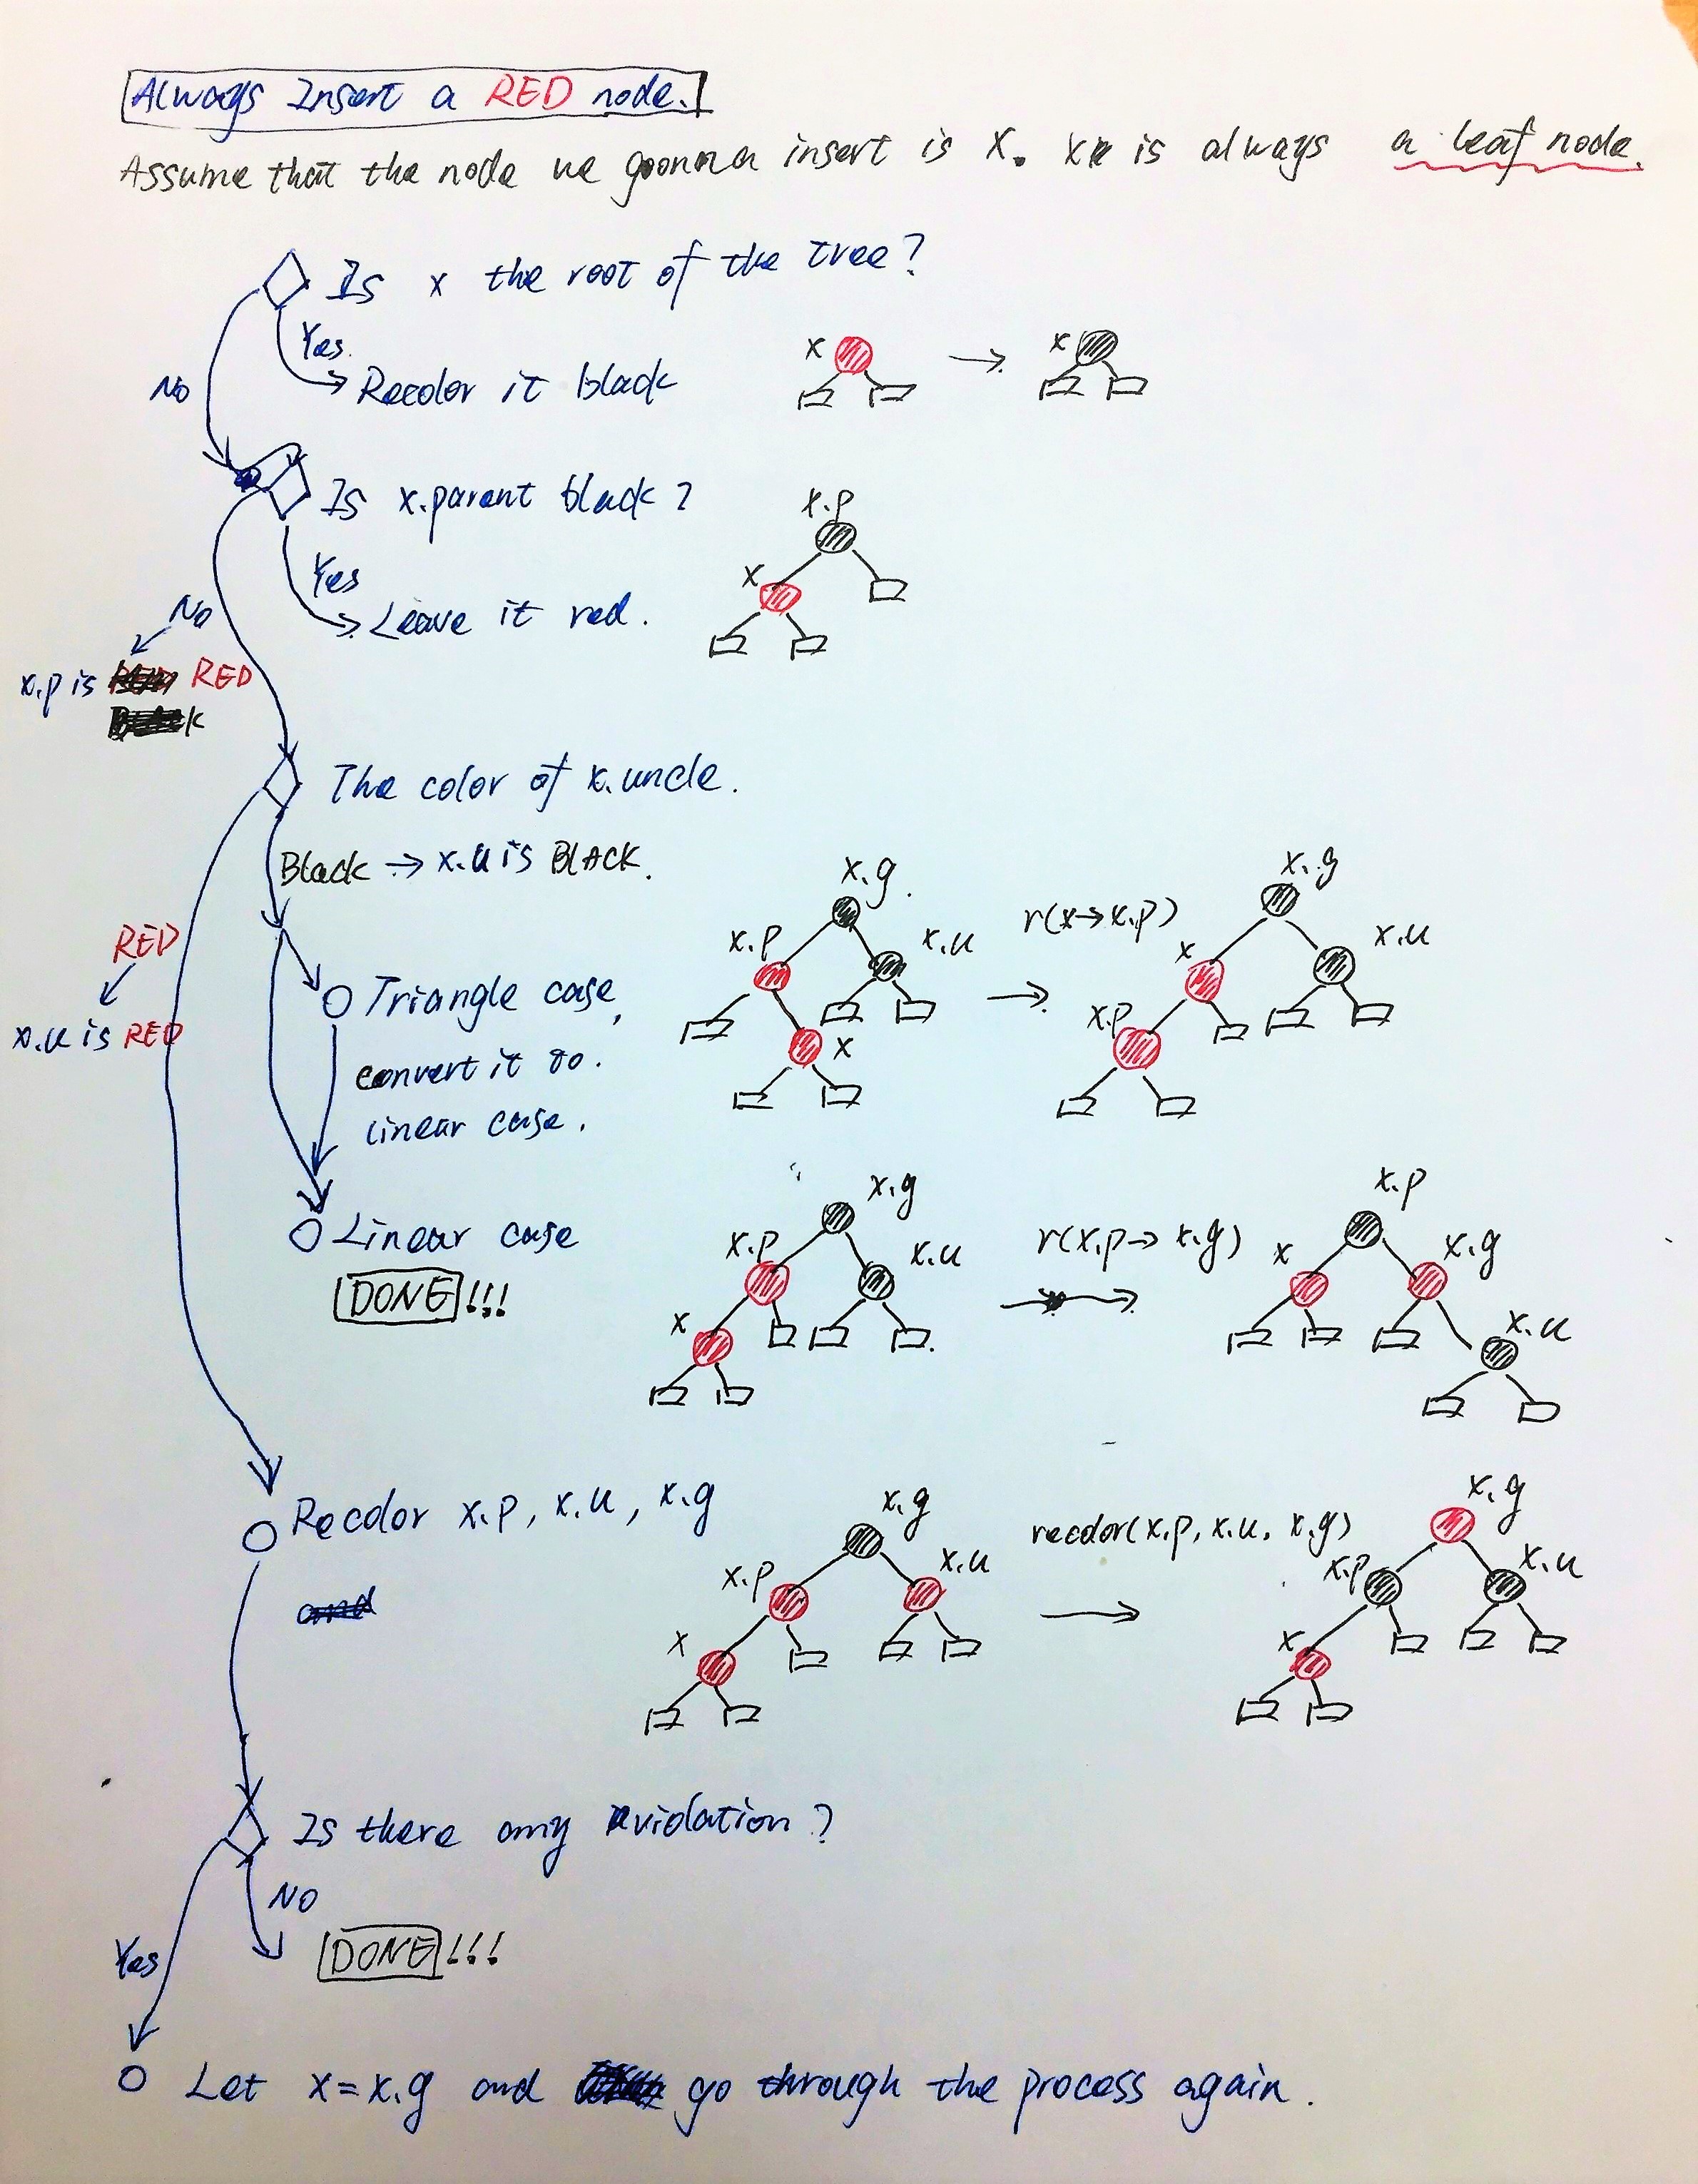 Always Insert a RED node.
Assume that the node we goonna insert is x. x is always a leaf node.
Is x the root of the tree?
Yes.
No
Recolor it black
x
x
Is x.parent black?
x.p
x
Yes
Leave it red.
No
x.p is RED
The color of x.uncle.
Black → x.u is BLACK.
RED
x.u is RED
Triangle case,
convert it to.
linear case.
x.g.
x.p
x.u
x
r(x→x.p)
x.g
x
x.u
x.p
Linear case
DONE!!!
x.g
x.p
x.u
x
r(x.p→x.g)
x.p
x
x.g
x.u
Recolor x.p, x.u, x.g
x.g
x.p
x.u
x
recolor(x.p, x.u, x.g)
x.g
x.p
x.u
x
Is there any violation?
NO
DONE!!!
Yes
Let x=x.g and go through the process again.